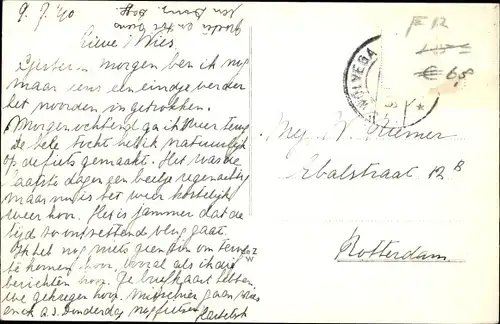 9. 7. '40
Lieve Wies.
Gisteren morgen ben ik nog
maar eens een eindje verder
het noorden in getrokken.
Morgenochtend ga ik weer terug
De hele tocht heb ik natuurlijk
op de fiets gemaakt. Het was de
laatste dagen een beetje regenachtig
maar nu is het weer kostelijk
weer hoor. Het is jammer dat de
tijd zo ontzettend vlug gaat.
Ik het nog niets om terug
te komen hoor, vooral als ik die
berichten hoor. Je briefkaart hebben
we gekregen hoor. Misschien gaan
a.s. Donderdag nog fietsen Hartelijk
WOLVEGA
F 12
€ 6,8
Mej. W. Kiemer
Ebalstraat 12 B
Rotterdam
Z
W